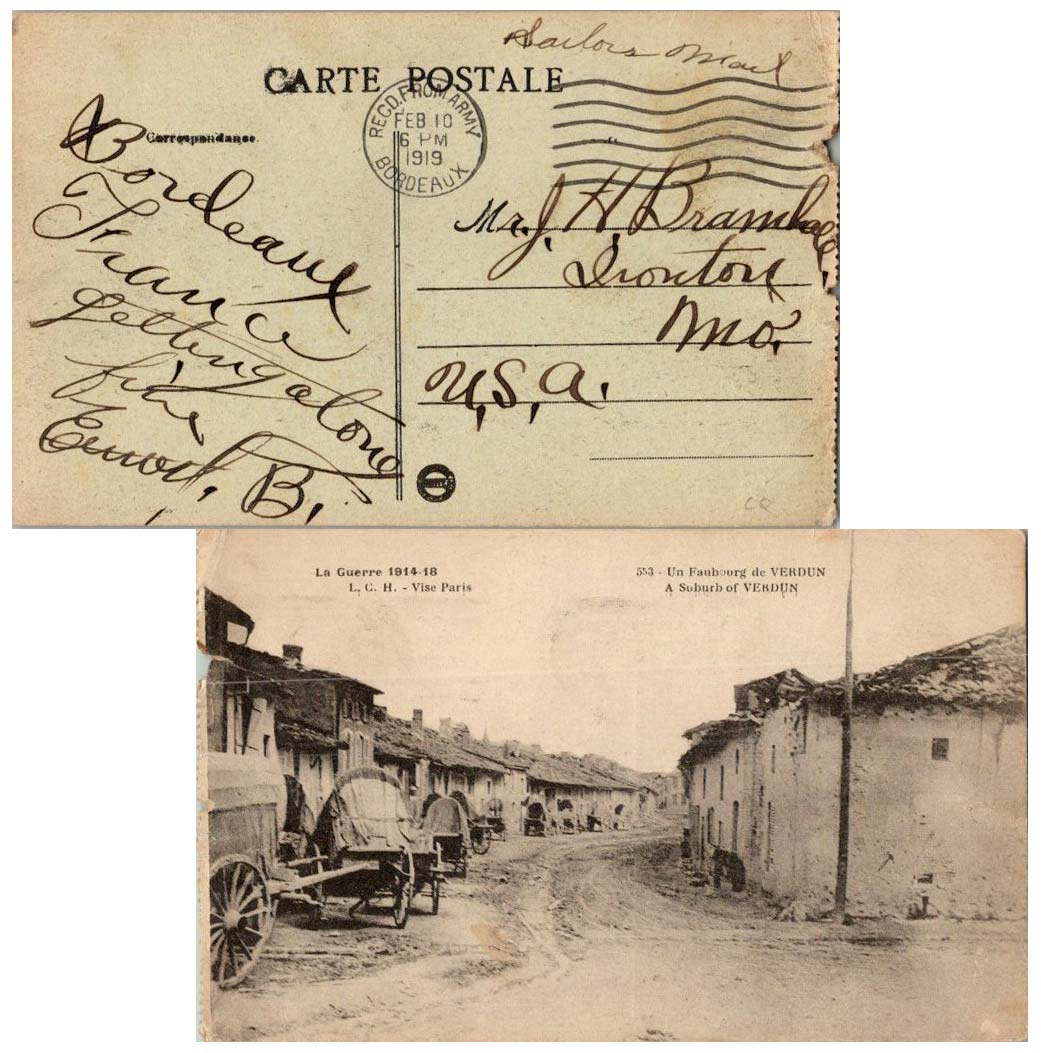 Sailors Mail
CARTE POSTALE
Correspondance.
RECD. FROM ARMY
FEB 10
6 PM
1919
BORDEAUX
Bordeaux
France
Getting along
fine
B.
Mr. J. H. Bramhall,
Ironton
Mo.
U.S.A.
La Guerre 1914-18
L. C. H. - Vise Paris
553 - Un Faubourg de VERDUN
A Suburb of VERDUN